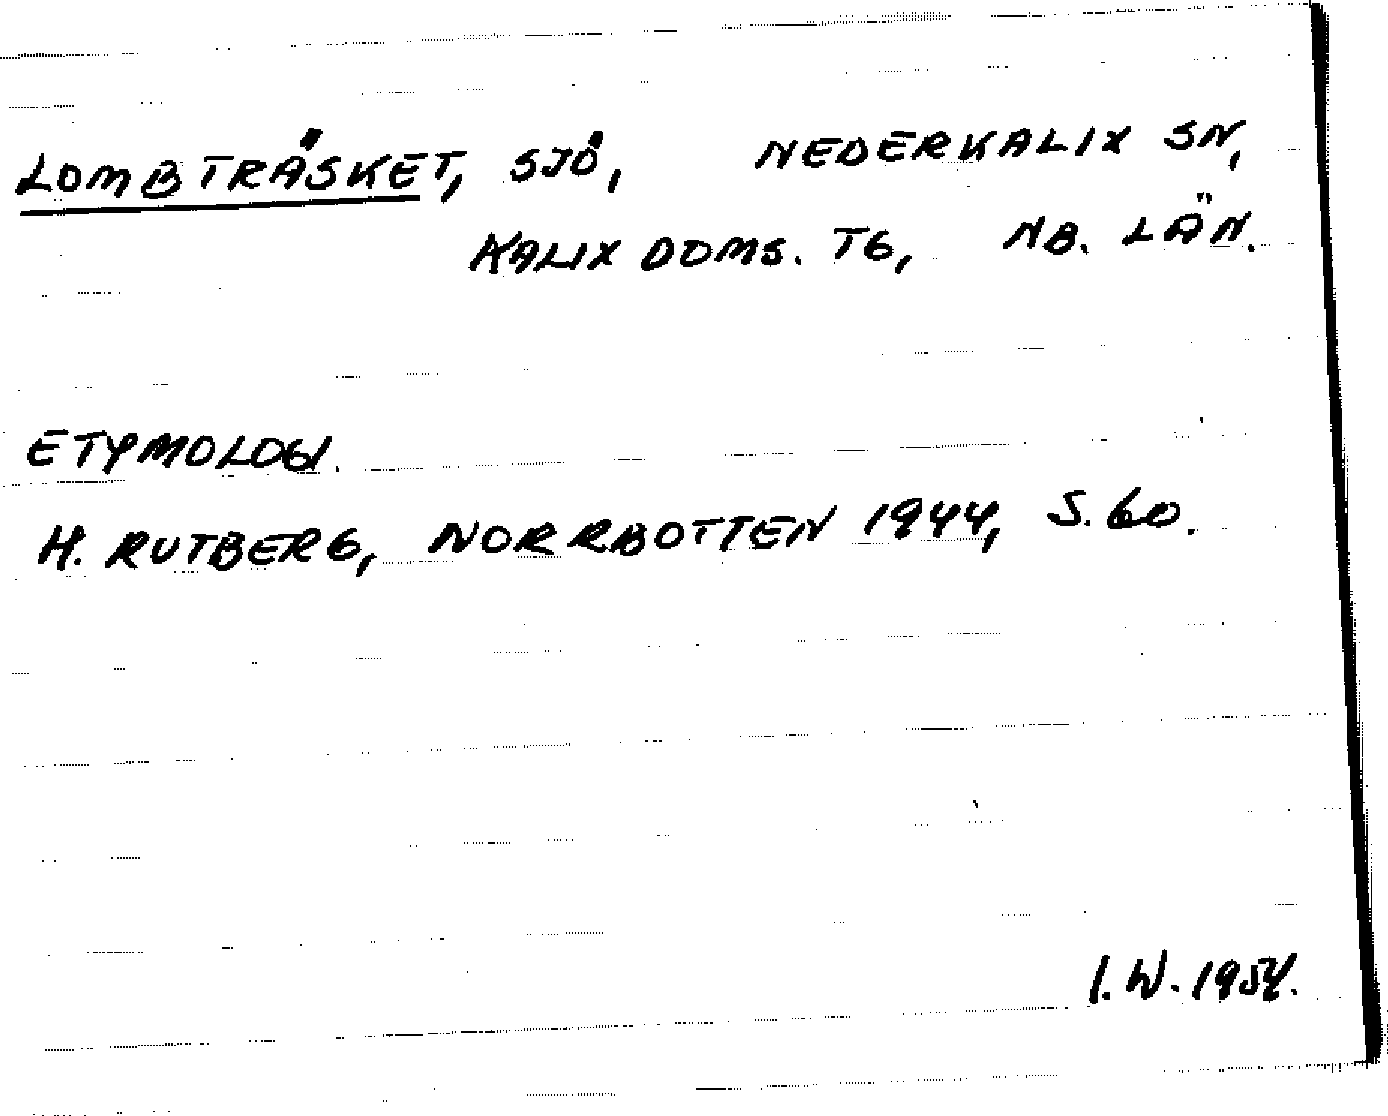 LOMBTRÄSKET, SJÖ, NEDERKALIX SN,
KALIX DOMS. TG, NB. LÄN.
ETYMOLOGI.
H. RUTBERG, NORRBOTTEN 1944, S. 60.
I. W. 1954.